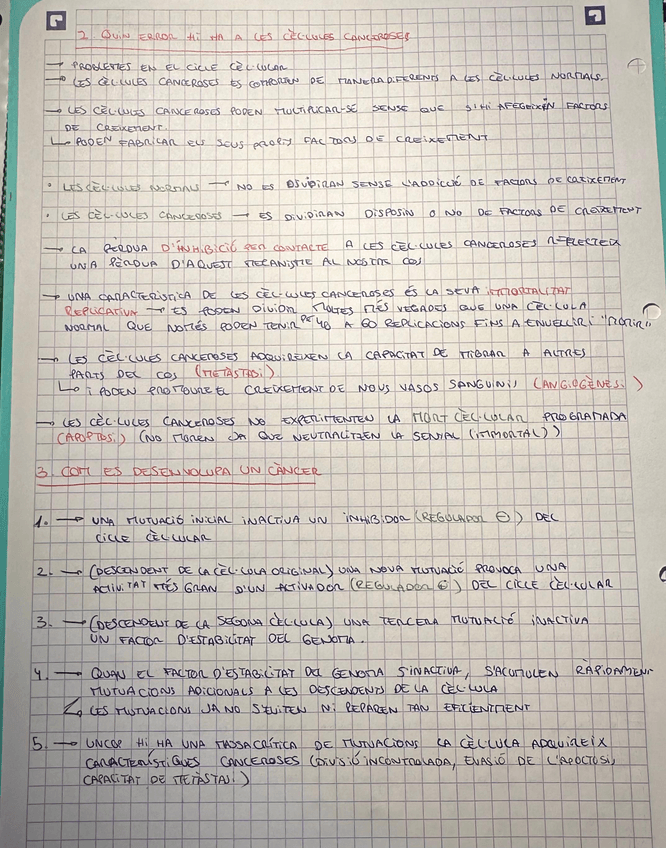 2. QUIN ERROR HI HA A LES CÈL·LULES CANCEROSES
→ PROBLEMES EN EL CICLE CÈL·LULAR
→ LES CÈL·LULES CANCEROSES ES COMPORTEN DE MANERA DIFERENTS A LES CÈL·LULES NORMALS.
→ LES CÈL·LULES CANCEROSES PODEN MULTIPLICAR-SE SENSE QUE S'HI AFEGEIXEN FACTORS
DE CREIXEMENT.
↳ PODEN FABRICAR ELS SEUS PROPIS FACTORS DE CREIXEMENT
• LES CÈL·LULES NORMALS → NO ES DIVIDIRAN SENSE L'ADDICIÓ DE FACTORS DE CREIXEMENT
• LES CÈL·LULES CANCEROSES → ES DIVIDIRAN DISPOSIN O NO DE FACTORS DE CREIXEMENT
→ LA PÈRDUA D'INHIBICIÓ PER CONTACTE A LES CÈL·LULES CANCEROSES REFLECTEIX
UNA PÈRDUA D'AQUEST MECANISME AL NOSTRE COS
→ UNA CARACTERÍSTICA DE LES CÈL·LULES CANCEROSES ÉS LA SEVA IMMORTALITAT
REPLICATIVA → ES PODEN DIVIDIR MOLTES MÉS VEGADES QUE UNA CÈL·LULA
NORMAL QUE NOMÉS PODEN TENIR 40 A 60 REPLICACIONS FINS A ENVELLIR I "MORIR"
→ LES CÈL·LULES CANCEROSES ADQUIREIXEN LA CAPACITAT DE MIGRAR A ALTRES
PARTS DEL COS (METÀSTASI)
↳ I PODEN PROMOURE EL CREIXEMENT DE NOUS VASOS SANGUINIS (ANGIOGÈNESI)
→ LES CÈL·LULES CANCEROSES NO EXPERIMENTEN LA MORT CÈL·LULAR PROGRAMADA
(APOPTOSI) (NO MOREN JA QUE NEUTRALITZEN LA SENYAL (IMMORTAL))
3. COM ES DESENVOLUPA UN CÀNCER
1. → UNA MUTUACIÓ INICIAL INACTIVA UN INHIBIDOR (REGULADOR ⊖) DEL
CICLE CÈL·LULAR
2. → (DESCENDENT DE LA CÈL·LULA ORIGINAL) UNA NOVA MUTUACIÓ PROVOCA UNA
ACTIVITAT MÉS GRAN D'UN ACTIVADOR (REGULADOR ⊕) DEL CICLE CÈL·LULAR
3. → (DESCENDENT DE LA SEGONA CÈL·LULA) UNA TERCERA MUTUACIÓ INACTIVA
UN FACTOR D'ESTABILITAT DEL GENOMA.
4. → QUAN EL FACTOR D'ESTABILITAT DEL GENOMA S'INACTIVA, S'ACUMULEN RÀPIDAMENT
MUTUACIONS ADICIONALS A LES DESCENDENTS DE LA CÈL·LULA
↳ LES MUTUACIONS JA NO S'EVITEN NI REPAREN TAN EFICIENTMENT
5. → UN COP HI HA UNA MASSA CRÍTICA DE MUTUACIONS LA CÈL·LULA ADQUIREIX
CARACTERÍSTIQUES CANCEROSES (DIVISIÓ INCONTROLADA, EVASIÓ DE L'APOCTOSI,
CAPACITAT DE METÀSTASI)